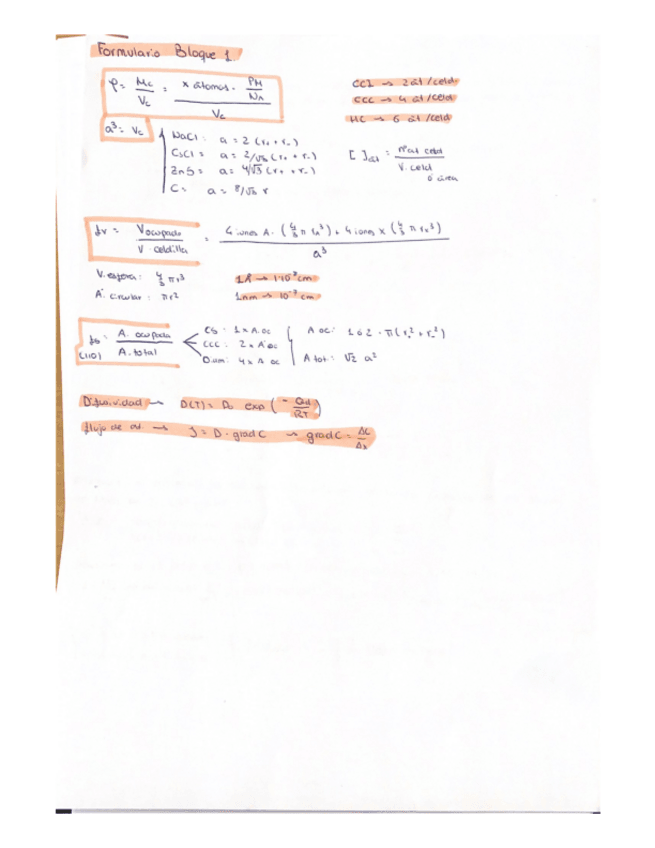 Formulario Bloque 1.
ρ = Mc / Vc = x átomos · PM/NA / Vc
CCI → 2 at/celd
CCC → 4 at/celd
HC → 6 at/celd
a³ = Vc
NaCl: a = 2 (r+ + r-)
CsCl: a = 2/√3 (r+ + r-)
ZnS: a = 4/√3 (r+ + r-)
C: a = 8/√3 r
[ ]at = nºat celd / V. celd
ó área
fv = Vocupado / V. celdilla = 4 iones A · (4/3 π r³) + 4 iones x (4/3 π r³) / a³
V. esfera: 4/3 πr³
A. circular: πr²
1Å → 1·10⁻⁸ cm
1nm → 10⁻⁷ cm
(110) A. ocupada / A. total
CS: 1 x A. oc
CCC: 2 x A. oc
Diam: 4 x A oc
A oc: 1 ó 2 · π(r+² + r-²)
A tot: √2 a²
Difusividad → D(T) = D0 exp (- Qd / RT)
flujo de at. → J = D · grad C → grad C = ΔC / Δx